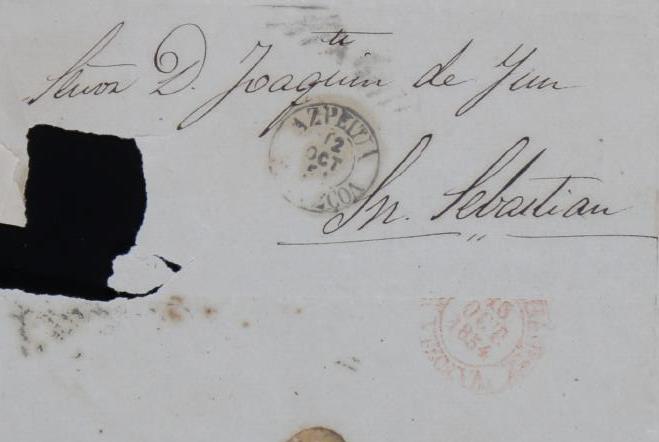 Señor D. Joaquin de Yun
AZPEITIA
12
OCT
Sn. Sebastian
OCT
1854